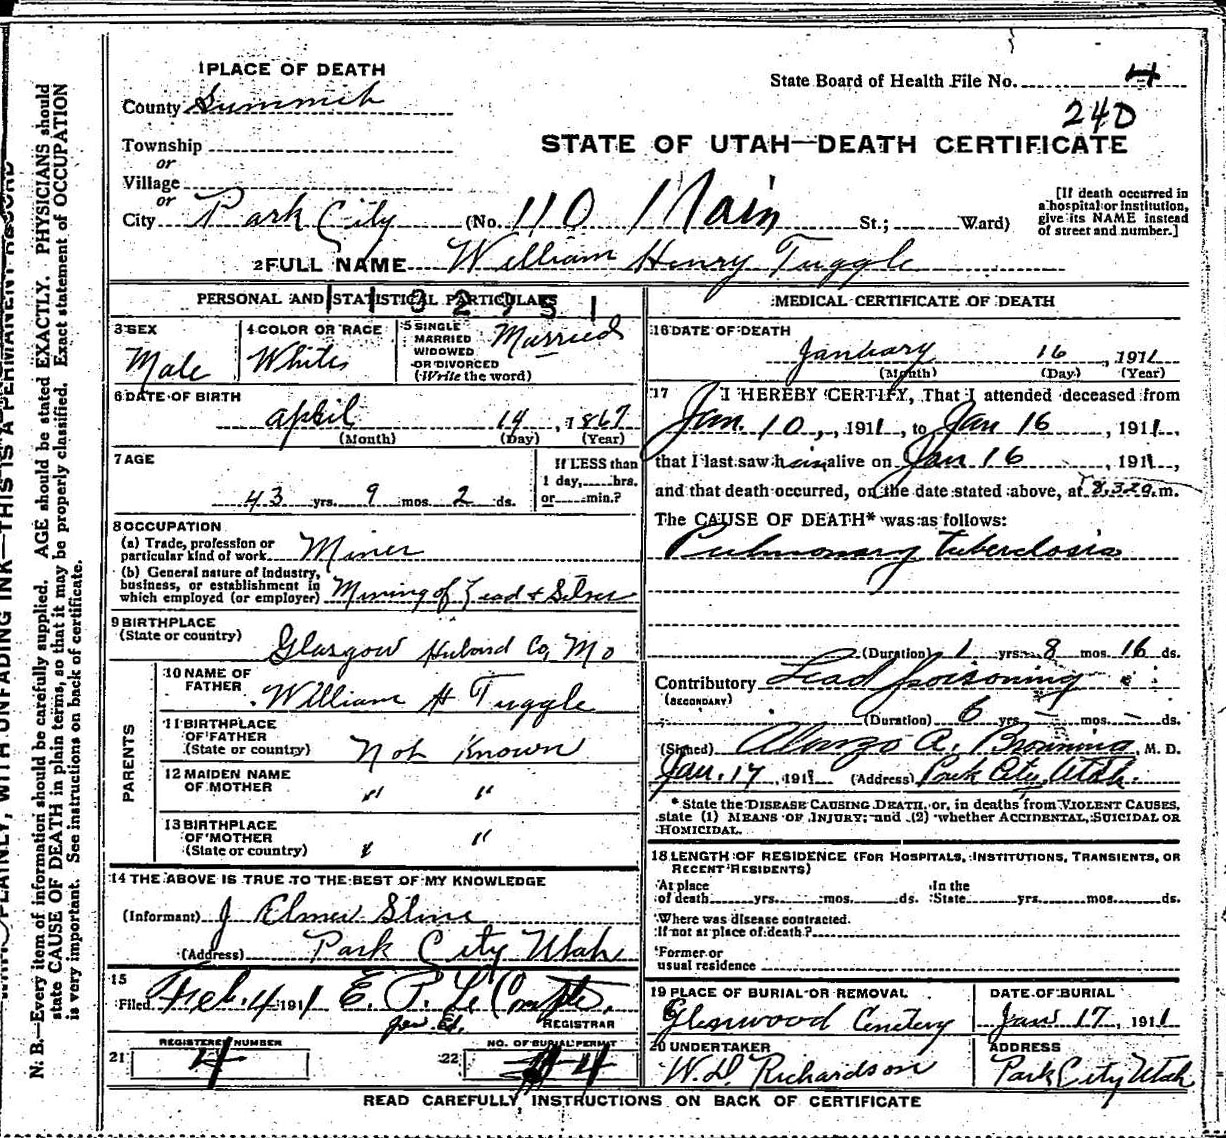 1 PLACE OF DEATH
County Summit
Township
or
Village
or
City Park City (No. 110 Main St.; Ward)
State Board of Health File No. 4
240
STATE OF UTAH—DEATH CERTIFICATE
[If death occurred in a hospital or institution, give its NAME instead of street and number.]
2 FULL NAME William Henry Tuggle
PERSONAL AND STATISTICAL PARTICULARS
3 SEX
Male
4 COLOR OR RACE
White
5 SINGLE
MARRIED
WIDOWED
OR DIVORCED
(Write the word)
Married
6 DATE OF BIRTH
April 14, 1867
(Month) (Day) (Year)
7 AGE
43 yrs. 9 mos. 2 ds.
If LESS than
1 day, hrs.
or min.?
8 OCCUPATION
(a) Trade, profession or
particular kind of work Miner
(b) General nature of industry,
business, or establishment in
which employed (or employer) Mining of Lead & Silver
9 BIRTHPLACE
(State or country)
Glasgow Co, Mo
PARENTS
10 NAME OF
FATHER
William H Tuggle
11 BIRTHPLACE
OF FATHER
(State or country) Not Known
12 MAIDEN NAME
OF MOTHER " "
13 BIRTHPLACE
OF MOTHER
(State or country) " "
14 THE ABOVE IS TRUE TO THE BEST OF MY KNOWLEDGE
(Informant) J Elmer
(Address) Park City Utah
15
Filed Feb. 4 1911 E. P. Le Compte,
REGISTRAR
REGISTERED NUMBER
21 4
NO. OF BURIAL PERMIT
22 4
MEDICAL CERTIFICATE OF DEATH
16 DATE OF DEATH
January 16, 1911
(Month) (Day) (Year)
17 I HEREBY CERTIFY, That I attended deceased from
Jan. 10, 1911, to Jan 16, 1911,
that I last saw him alive on Jan 16, 1911,
and that death occurred, on the date stated above, at m.
The CAUSE OF DEATH* was as follows:
Pulmonary Tuberclosis
(Duration) 1 yrs. 8 mos. 16 ds.
Contributory Lead poisoning
(SECONDARY)
(Duration) 6 yrs. — mos. — ds.
(Signed) Alonzo A. Browning, M. D.
Jan. 17, 1911 (Address) Park City, Utah.
* State the DISEASE CAUSING DEATH, or, in deaths from VIOLENT CAUSES,
state (1) MEANS OF INJURY; and (2) whether ACCIDENTAL, SUICIDAL OR
HOMICIDAL.
18 LENGTH OF RESIDENCE (FOR HOSPITALS, INSTITUTIONS, TRANSIENTS, OR
RECENT RESIDENTS)
At place
of death yrs. mos. ds.
In the
State yrs. mos. ds.
Where was disease contracted.
If not at place of death?
Former or
usual residence
19 PLACE OF BURIAL OR REMOVAL
Glenwood Cemetery
DATE OF BURIAL
Jan 17, 1911
20 UNDERTAKER
W. D. Richardson
ADDRESS
Park City Utah
READ CAREFULLY, INSTRUCTIONS ON BACK OF CERTIFICATE
PLAINLY, WITH UNFADING INK—THIS IS A PERMANENT RECORD
N. B.—Every item of information should be carefully supplied. AGE should be stated EXACTLY. PHYSICIANS should
state CAUSE OF DEATH in plain terms, so that it may be properly classified. Exact statement of OCCUPATION
is very important. See instructions on back of certificate.